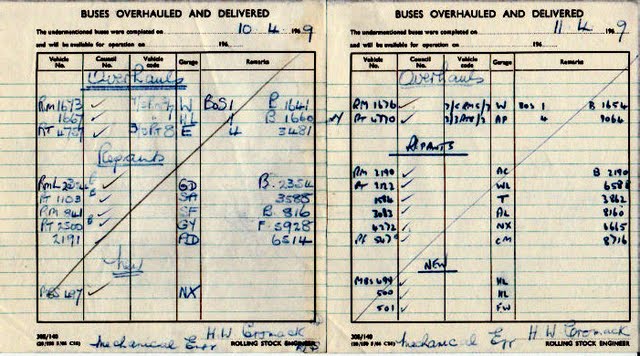 BUSES OVERHAULED AND DELIVERED
The undermentioned buses were completed on 10.4.1969
and will be available for operation on 196
Vehicle No. Council No. Vehicle code Garage Remarks
Overhauls
RM 1673 ✓ W BOS1 B 1641
1667 ✓ HL 1 B 1660
RT 4737 ✓ E 4 3481
Repaints
RML 2354 ✓ GD B. 2354
RT 1103 ✓ SA 3585
RM 841 ✓ SF B. 816
RT 2500 ✓ GY F. 3928
2191 ✓ 6514
New
MBS 497 ✓ NX
308/140
Mechanical Engr H W Cromack
ROLLING STOCK ENGINEER
BUSES OVERHAULED AND DELIVERED
The undermentioned buses were completed on 11.4.1969
and will be available for operation on 196
Vehicle No. Council No. Vehicle code Garage Remarks
Overhauls
RM 1676 ✓ W BOS 1 B 1654
RT 4770 ✓ AP 4 9064
REPAINTS
RM 2190 ✓ AC B 2190
RT 2122 ✓ WL 6588
1586 ✓ T 3862
3083 ✓ AL 8160
4272 ✓ NX 6665
✓ CM 8716
NEW
MBS 499 ✓ HL
500 ✓ HL
501 ✓ FW
308/140
Mechanical Engr H W Cromack
ROLLING STOCK ENGINEER